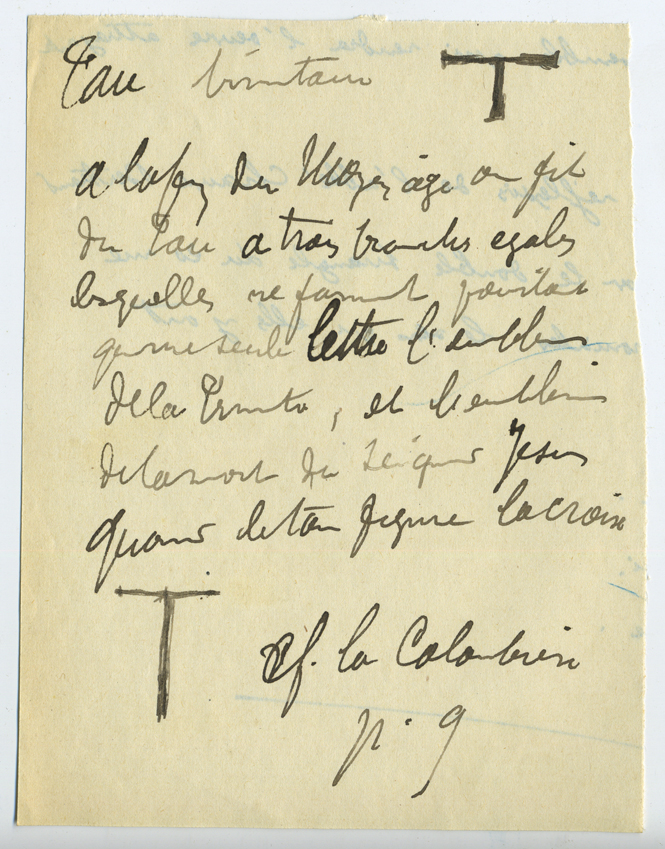 Tau trinitaire T
A la fin du Moyen âge on fit
du Tau a trois branches egales
lesquelles ne formant pourtant
qu'une seule lettre l'emblème
de la Trinité, et l'emblème
de la mort du Seigneur Jesus
quand le tau figure la croix
T cf. la Colombière
p. 9